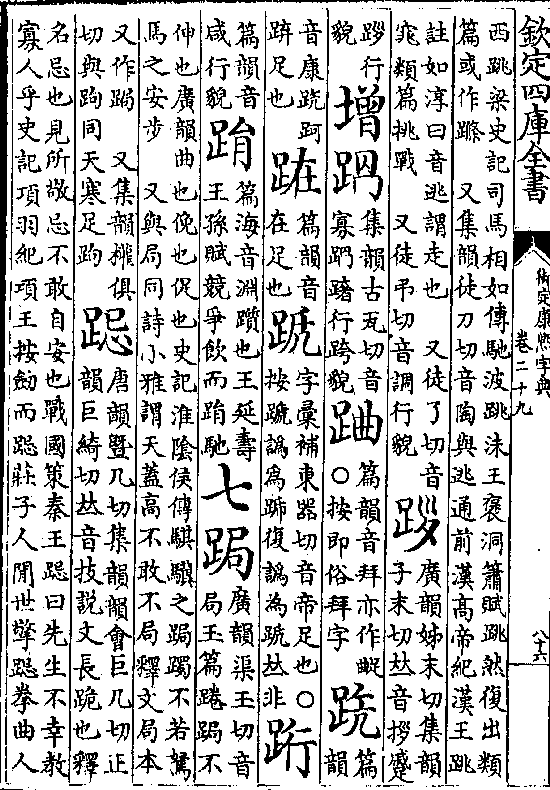 欽定四庫全書
御定康熙字典
卷二十九
八十六
西跳梁史記司馬相如傳馳波跳沫王褒洞簫賦跳然復出類
篇或作 又集韻徒刀切音陶與逃通前漢高帝紀漢王跳
註如淳曰音逃謂走也 又徒了切音
窕類篇挑戰 又徒弔切音調行貌
廣韻姊末切集韻
子末切𠀤音拶躠
行
貌
增
集韻古瓦切音
寡躇行跨貌
篇韻音拜亦作
○按即俗拜字
篇
韻
音康
足也
篇韻音
在足也
字彙補東器切音帝足也○
按譌為蹏復譌為𠀤非
篇韻音
咸行貌
篇海音淵躦也王延壽
王孫賦競爭飲而馳
七
跼
廣韻渠玉切音
局玉篇踡跼不
伸也廣韻曲也俛也促也史記淮陰侯傳騏驥之跼躅不若駑
馬之安步 又與局同詩小雅謂天蓋高不敢不局釋文局本
又作跼 又集韻俱
切與跔同天寒足跔
跽
唐韻曁几切集韻韻會巨几切正
韻巨綺切𠀤音技說文長跪也釋
名忌也見所敬忌不敢自安也戰國策秦王跽曰先生不幸教
寡人乎史記項羽紀項王按劍而跽莊子人閒世擎跽拳曲人